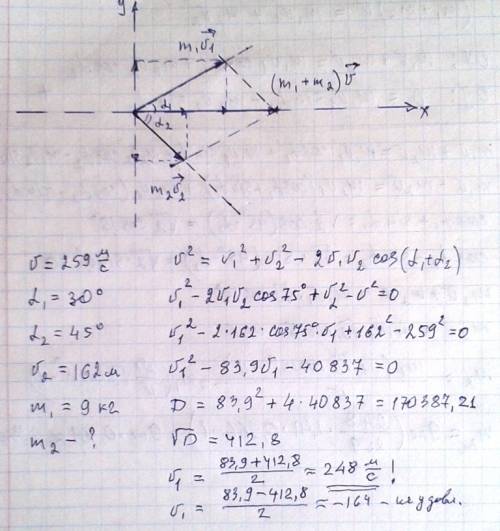 y
m₁v⃗₁
(m₁+m₂)v⃗
α₁
α₂
x
m₂v⃗₂
v=259 м/с
v²=v₁²+v₂²-2v₁v₂ cos(α₁+α₂)
α₁=30°
v₁²-2v₁v₂cos75°+v₂²-v²=0
α₂=45°
v₁²-2·162·cos75°·v₁+162²-259²=0
v₂=162м
v₁²-83,9v₁-40837=0
m₁=9 кг
D=83,9²+4·40837=170387,21
m₂-?
√D=412,8
v₁=(83,9+412,8)/2≈248 м/с!
v₁=(83,9-412,8)/2≈-164-не удовл.